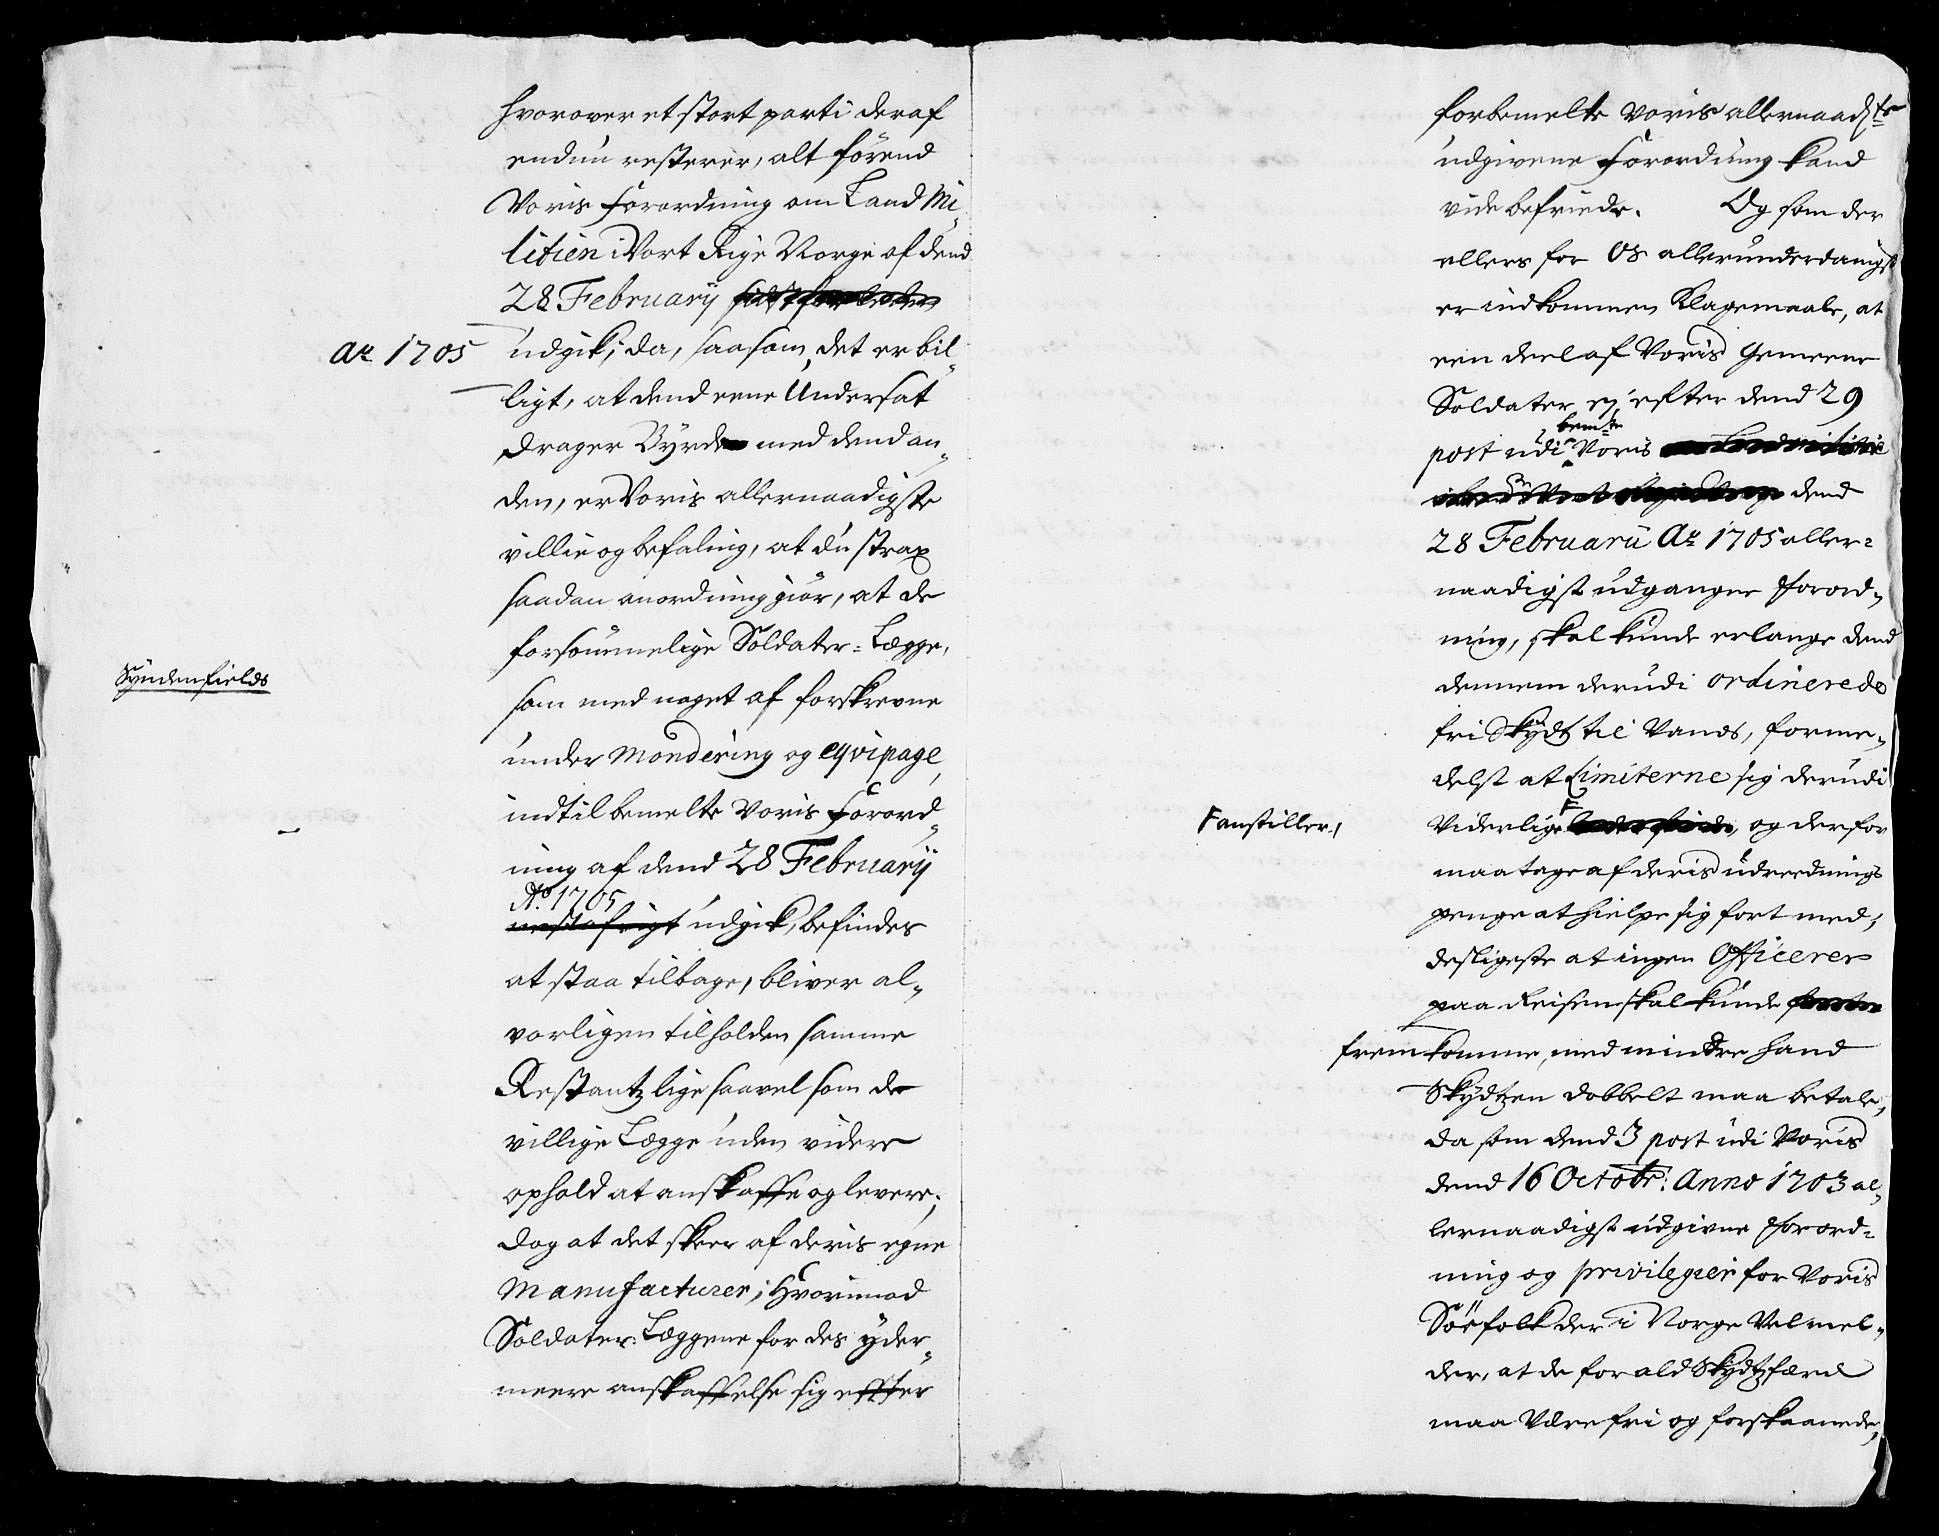 hvorover et stort parti deraf
endnu resterer, alt förend
Voris Forordning om Land Mi-
litien i Vort Rige Norge af dend
28 Februarij sidstforleden
Aº 1705 udgik; da, saasom det er bil-
ligt, at dend eene Undersat
drager Byrde med dend an-
den, er Voris allernaadigste
villie og befaling, at du strax
saadan anordning giör, at de
forsömmelige Soldater-Lægge,
Syndenfields
som med noget af forskrevne
under Mondering og eqvipage,
indtil bemelte Voris Forord-
ning af dend 28 Februarij
Aº. 1705
nestafvigt udgik, befindes
at staa tilbage, bliver al-
vorligen tilholden samme
Restantz lige saavel som de
villige Lægge uden videre
ophold at anskaffe og levere;
dog at det skeer af deris egne
Manufacturer; Hvorimod
Soldater-Læggene for des yder-
meere anskaffelse sig effter
forbemelte Voris allernaadste
udgivene Forordning kand
vide befriede. Og som der
ellers for Os allerunderdanigst
er indkommen Klagemaale, at
een deel af Voris Gemeene
Soldater ej efter dend 29
bemte
post udi Voris om Land militie
dend
28 Februarii Aº 1705 aller-
naadigst udgangne Forord-
ning, skal kunde erlange dend
dennem derudi ordinerede
fri Skydtz til Vands, forme-
delst at Limiterne sig derudi
F anstiller,
Viderlige F, og derfor
maa tage af deris udreednings
penge at hielpe sig fort med;
desligeste at ingen Officerer
paa Reisen skal kunde
fremkomme, med mindre hand
Skydtzen dobbelt maa betale,
da som dend 3 post udi Voris
dend 16 Octobr: Anno 1703 al-
lernaadigst udgivne Forord-
ning og privilegier for Voris
Söefolk der i Norge Vel mel-
der, at de for ald Skydtzfærd
maa være fri og forskaanede,